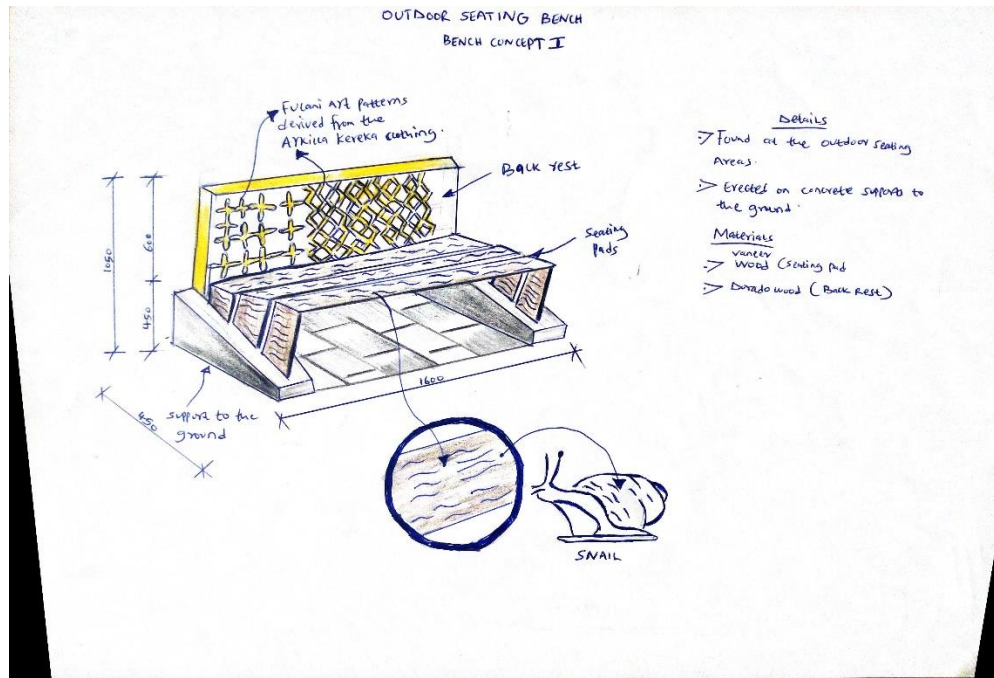 OUTDOOR SEATING BENCH
BENCH CONCEPT I
Fulani Art patterns
derived from the
Arkilla Kereka clothing.
Back rest
seating
pads
1050
600
450
1600
850
support to the
ground
SNAIL
Details
Found at the outdoor seating
Areas.
Erected on concrete support to
the ground.
Materials
vaneer
Wood (seating pad
Dorado wood (Back Rest)